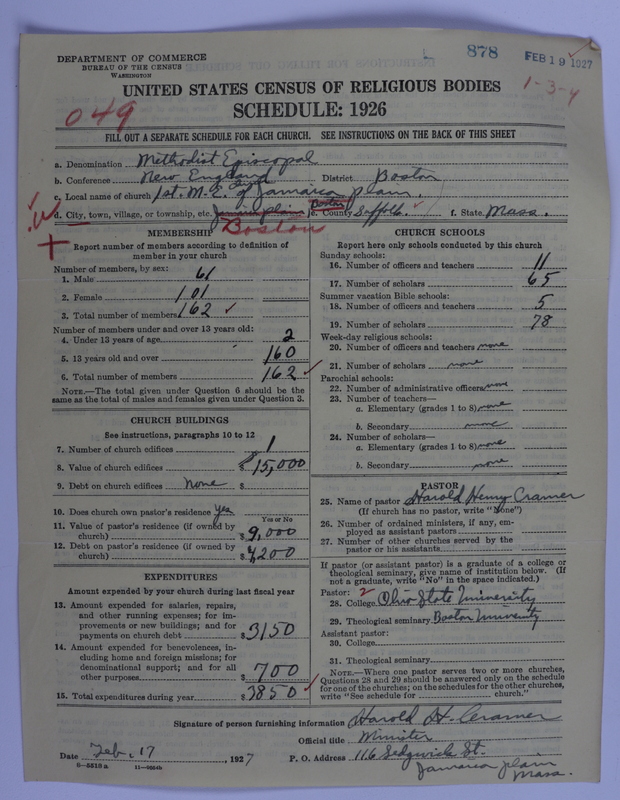 878
FEB 19 1927
1-3-4
DEPARTMENT OF COMMERCE
BUREAU OF THE CENSUS
WASHINGTON
UNITED STATES CENSUS OF RELIGIOUS BODIES
SCHEDULE: 1926
049
FILL OUT A SEPARATE SCHEDULE FOR EACH CHURCH. SEE INSTRUCTIONS ON THE BACK OF THIS SHEET
a. Denomination Methodist Episcopal
b. Conference New England District Boston
c. Local name of church 1st. M. E. of Jamaica Plain
d. City, town, village, or township, etc. Jamaica Plain Boston e. County Suffolk. f. State Mass.
Boston
MEMBERSHIP
Report number of members according to definition of
member in your church
Number of members, by sex:
1. Male 61
2. Female 101
3. Total number of members 162
Number of members under and over 13 years old:
4. Under 13 years of age 2
5. 13 years old and over 160
6. Total number of members 162
NOTE.—The total given under Question 6 should be the
same as the total of males and females given under Question 3.
CHURCH BUILDINGS
See instructions, paragraphs 10 to 12
7. Number of church edifices 1
8. Value of church edifices $15,000
9. Debt on church edifices None $
10. Does church own pastor's residence yes
Yes or No
11. Value of pastor's residence (if owned by
church) $9,000
12. Debt on pastor's residence (if owned by
church) $4200
EXPENDITURES
Amount expended by your church during last fiscal year
13. Amount expended for salaries, repairs,
and other running expenses; for im-
provements or new buildings; and for
payments on church debt $3150
14. Amount expended for benevolences, in-
cluding home and foreign missions; for
denominational support; and for all
other purposes $700
15. Total expenditures during year $3850
CHURCH SCHOOLS
Report here only schools conducted by this church
Sunday schools:
16. Number of officers and teachers 11
17. Number of scholars 65
Summer vacation Bible schools:
18. Number of officers and teachers 5
19. Number of scholars 78
Week-day religious schools:
20. Number of officers and teachers none
21. Number of scholars none
Parochial schools:
22. Number of administrative officers none
23. Number of teachers—
a. Elementary (grades 1 to 8) none
b. Secondary none
24. Number of scholars—
a. Elementary (grades 1 to 8) none
b. Secondary none
PASTOR
25. Name of pastor Harold Henry Cramer
(If church has no pastor, write "None")
26. Number of ordained ministers, if any, em-
ployed as assistant pastors
27. Number of other churches served by the
pastor or his assistants
If pastor (or assistant pastor) is a graduate of a college or
theological seminary, give name of institution below. (If
not a graduate, write "No" in the space indicated.)
Pastor: 2
28. College Ohio State University
29. Theological seminary Boston University
Assistant pastor:
30. College
31. Theological seminary
NOTE.—Where one pastor serves two or more churches,
Questions 28 and 29 should be answered only on the schedule
for one of the churches; on the schedules for the other churches,
write "See schedule for church."
Signature of person furnishing information Harold H. Cramer
Official title Minister
Date Feb. 17, 1927 P. O. Address 116 Sedgwick St.
Jamaica Plain
Mass.
8-5519a 11-9664b